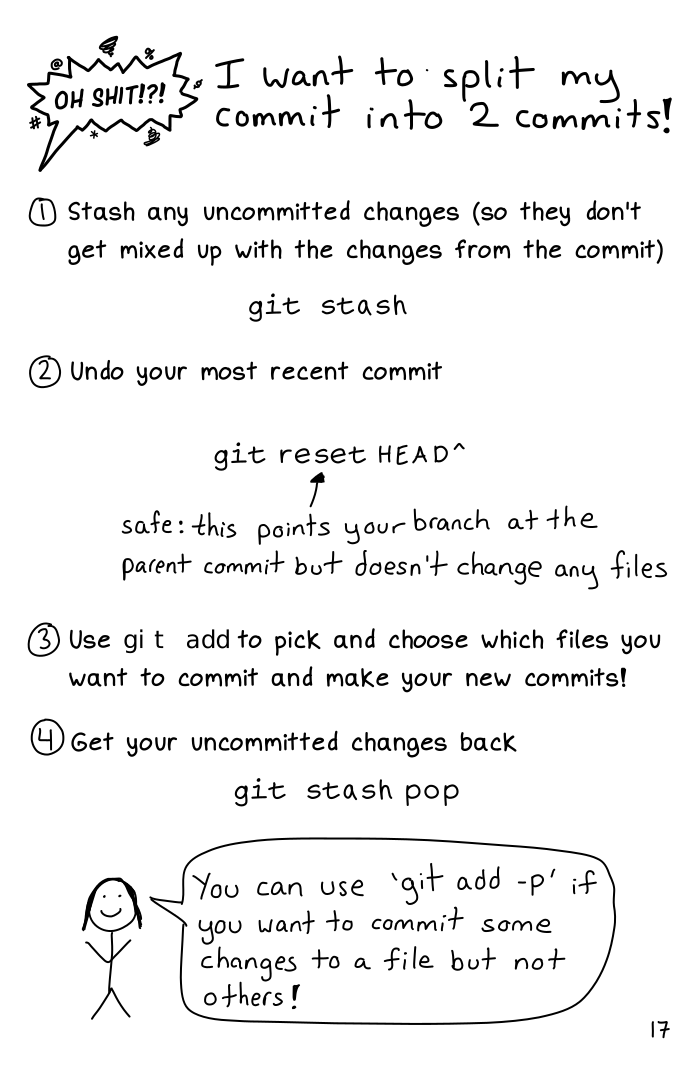 OH SHIT!?!
I want to split my
commit into 2 commits!
① Stash any uncommitted changes (so they don't
get mixed up with the changes from the commit)
git stash
② Undo your most recent commit
git reset HEAD^
safe: this points your branch at the
parent commit but doesn't change any files
③ Use git add to pick and choose which files you
want to commit and make your new commits!
④ Get your uncommitted changes back
git stash pop
You can use 'git add -p' if
you want to commit some
changes to a file but not
others!
17